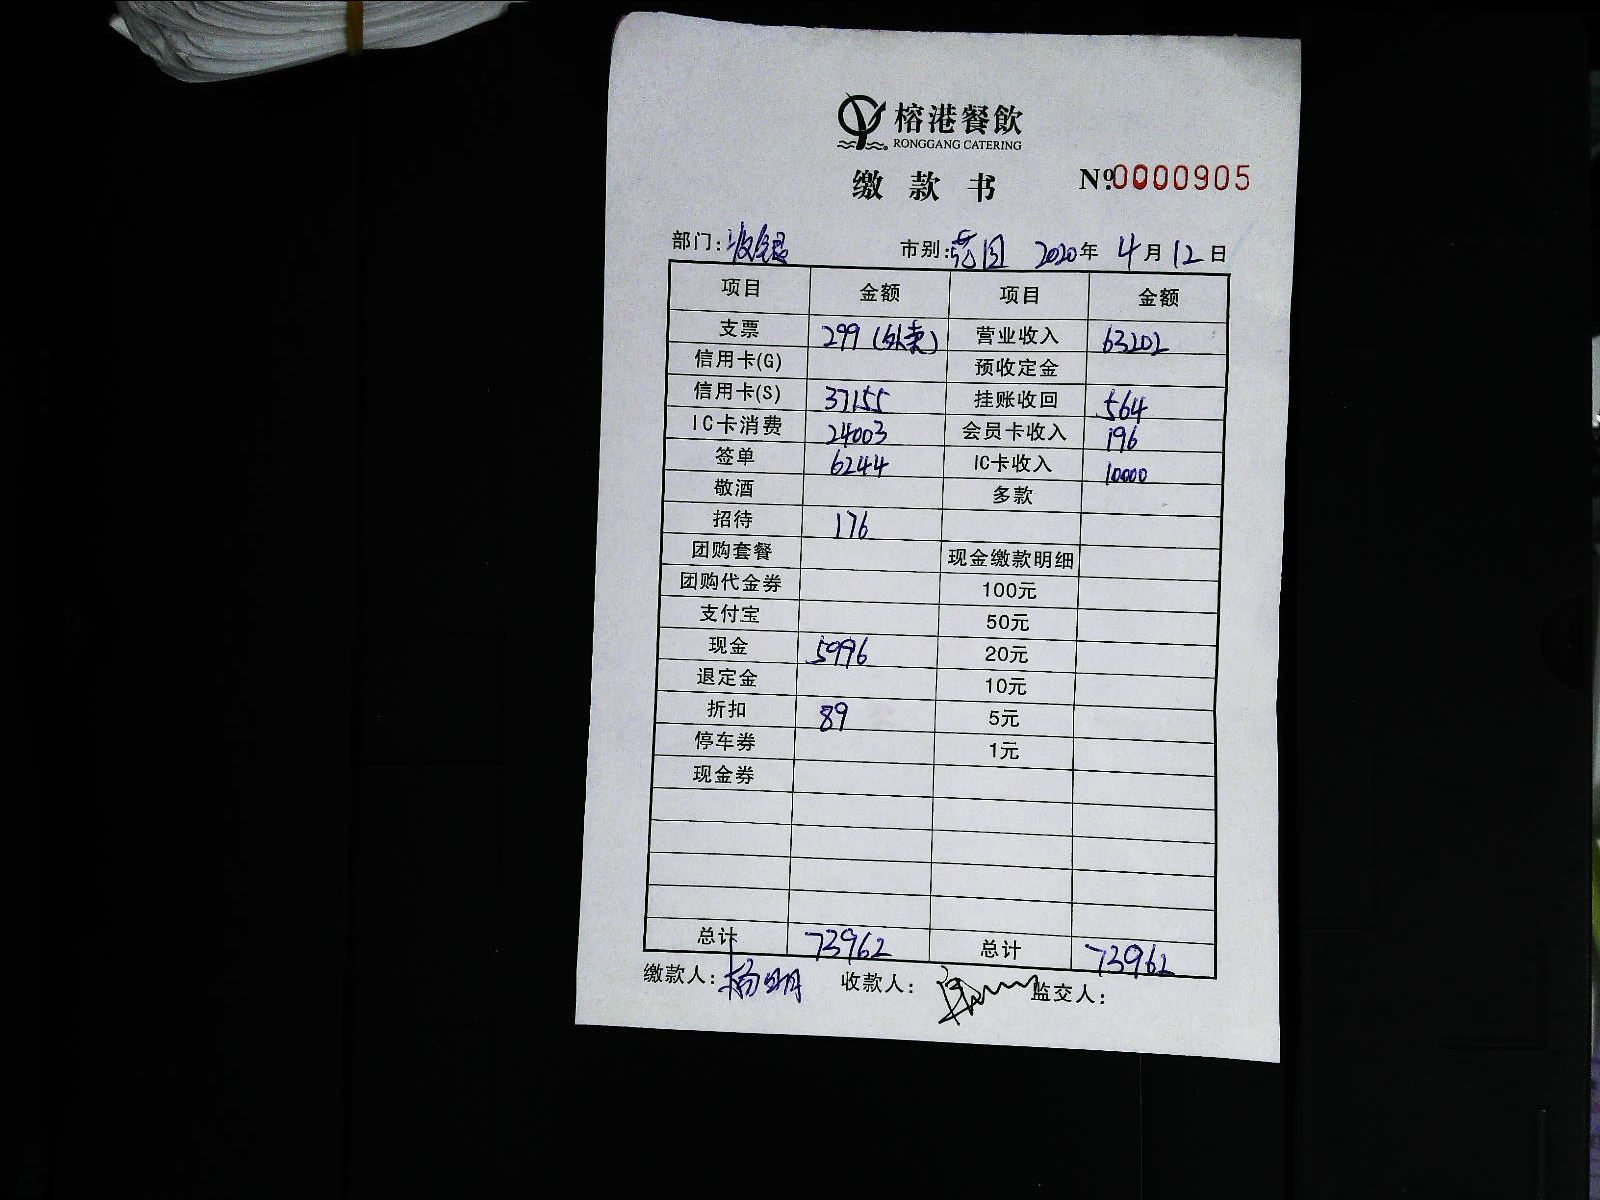 榕港餐飲
RONGGANG CATERING
缴款书 Nº 0000905
部门：收银 市别：范围 2020年 4月12日
项目 金额 项目 金额
支票 299（外卖） 营业收入 63202
信用卡(G) 预收定金
信用卡(S) 37155 挂账收回 564
IC卡消费 24003 会员卡收入 196
签单 6244 IC卡收入 10000
敬酒 多款
招待 176
团购套餐 现金缴款明细
团购代金券 100元
支付宝 50元
现金 5996 20元
退定金 10元
折扣 89 5元
停车券 1元
现金券
总计 73962 总计 73962
缴款人：杨明 收款人： 监交人：